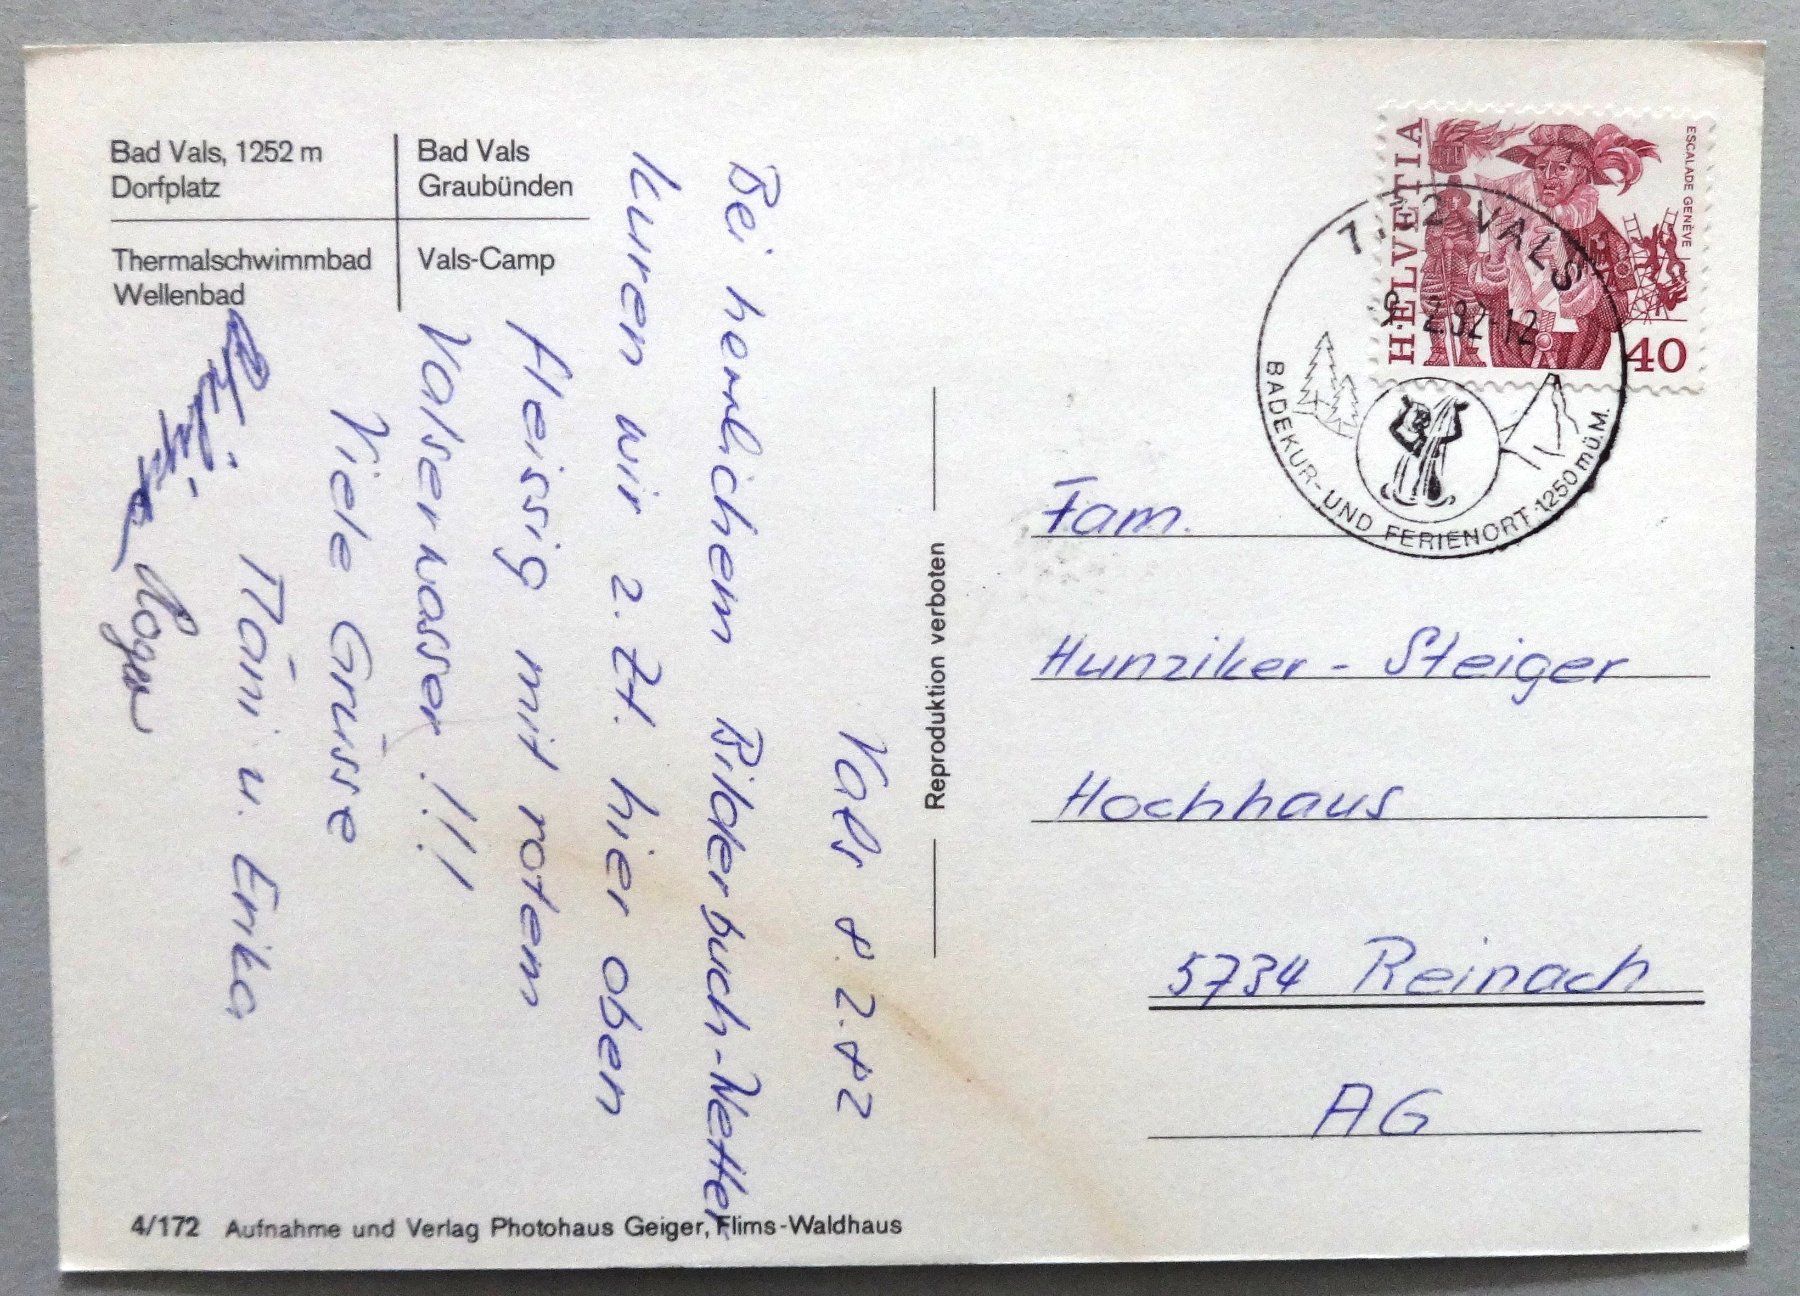 Bad Vals, 1252 m
Dorfplatz
Bad Vals
Graubünden
Thermalschwimmbad
Wellenbad
Vals-Camp
Vals 8.2.82
Bei herrlichem Bilderbuch-Wetter
kuren wir z. Zt. hier oben
Fleissig mit rotem
Valserwasser!!!
Viele Grüsse
Mäni u. Erika
Roger
Reproduktion verboten
4/172 Aufnahme und Verlag Photohaus Geiger, Flims-Waldhaus
HELVETIA
ESCALADE GENÈVE
40
7132 VALS
9.2.82-12
BADEKUR- UND FERIENORT · 1250 m ü. M.
Fam.
Hunziker - Steiger
Hochhaus
5734 Reinach
AG